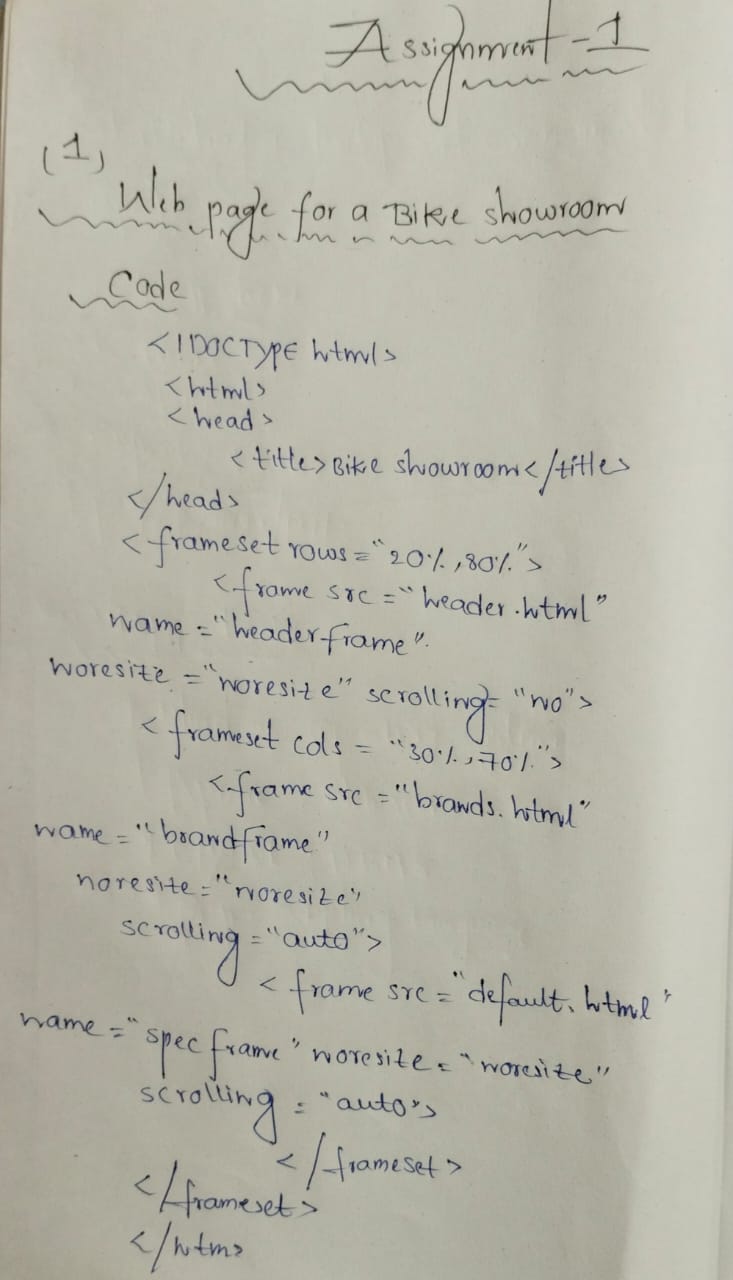 Assignment-1
(1)
Web page for a Bike showroom
Code
<!DOCTYPE html>
<html>
<head>
<title>Bike showroom</title>
</head>
<frameset rows="20%,80%">
<frame src="header.html"
name="headerframe".
noresize="noresize" scrolling="no">
<frameset cols="30%,70%">
<frame src="brands.html"
name="brandframe"
noresize="noresize"
scrolling="auto">
<frame src="default.html"
name="specframe" noresize="noresize"
scrolling="auto">
</frameset>
</frameset>
</htm>